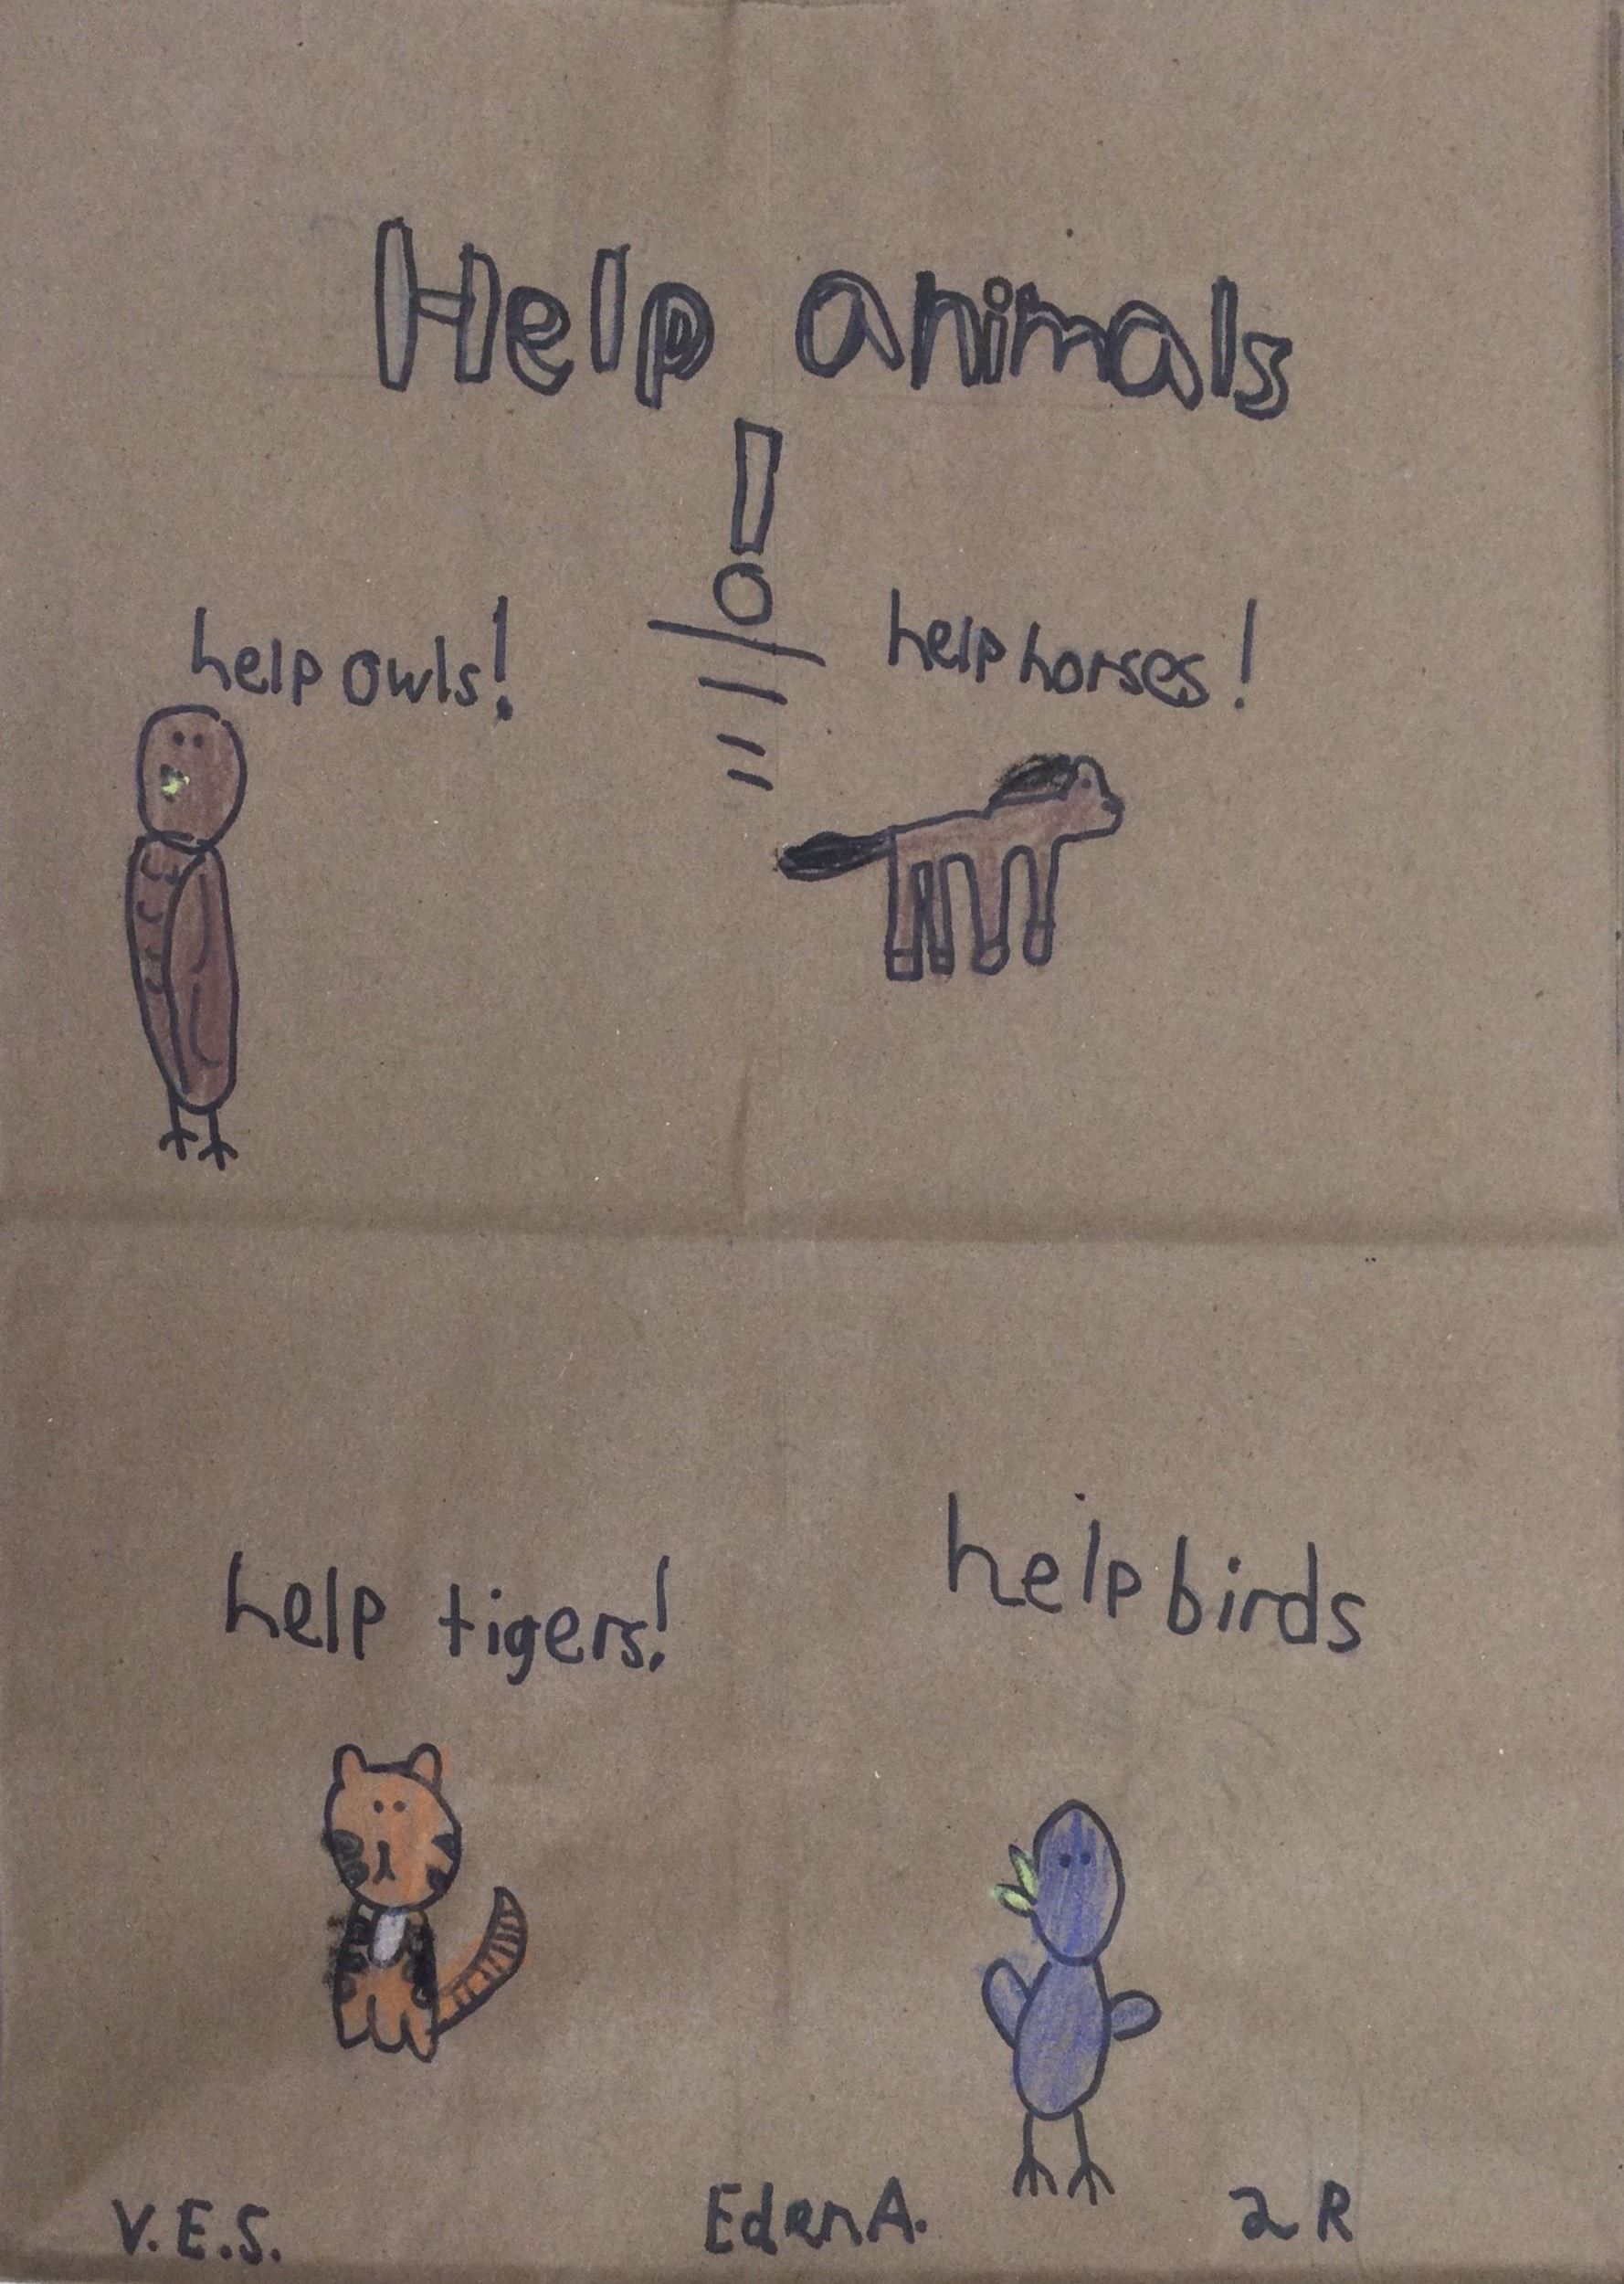 Help animals
!
help owls!
help horses!
help tigers!
help birds
V.E.S.
Eden A.
2R